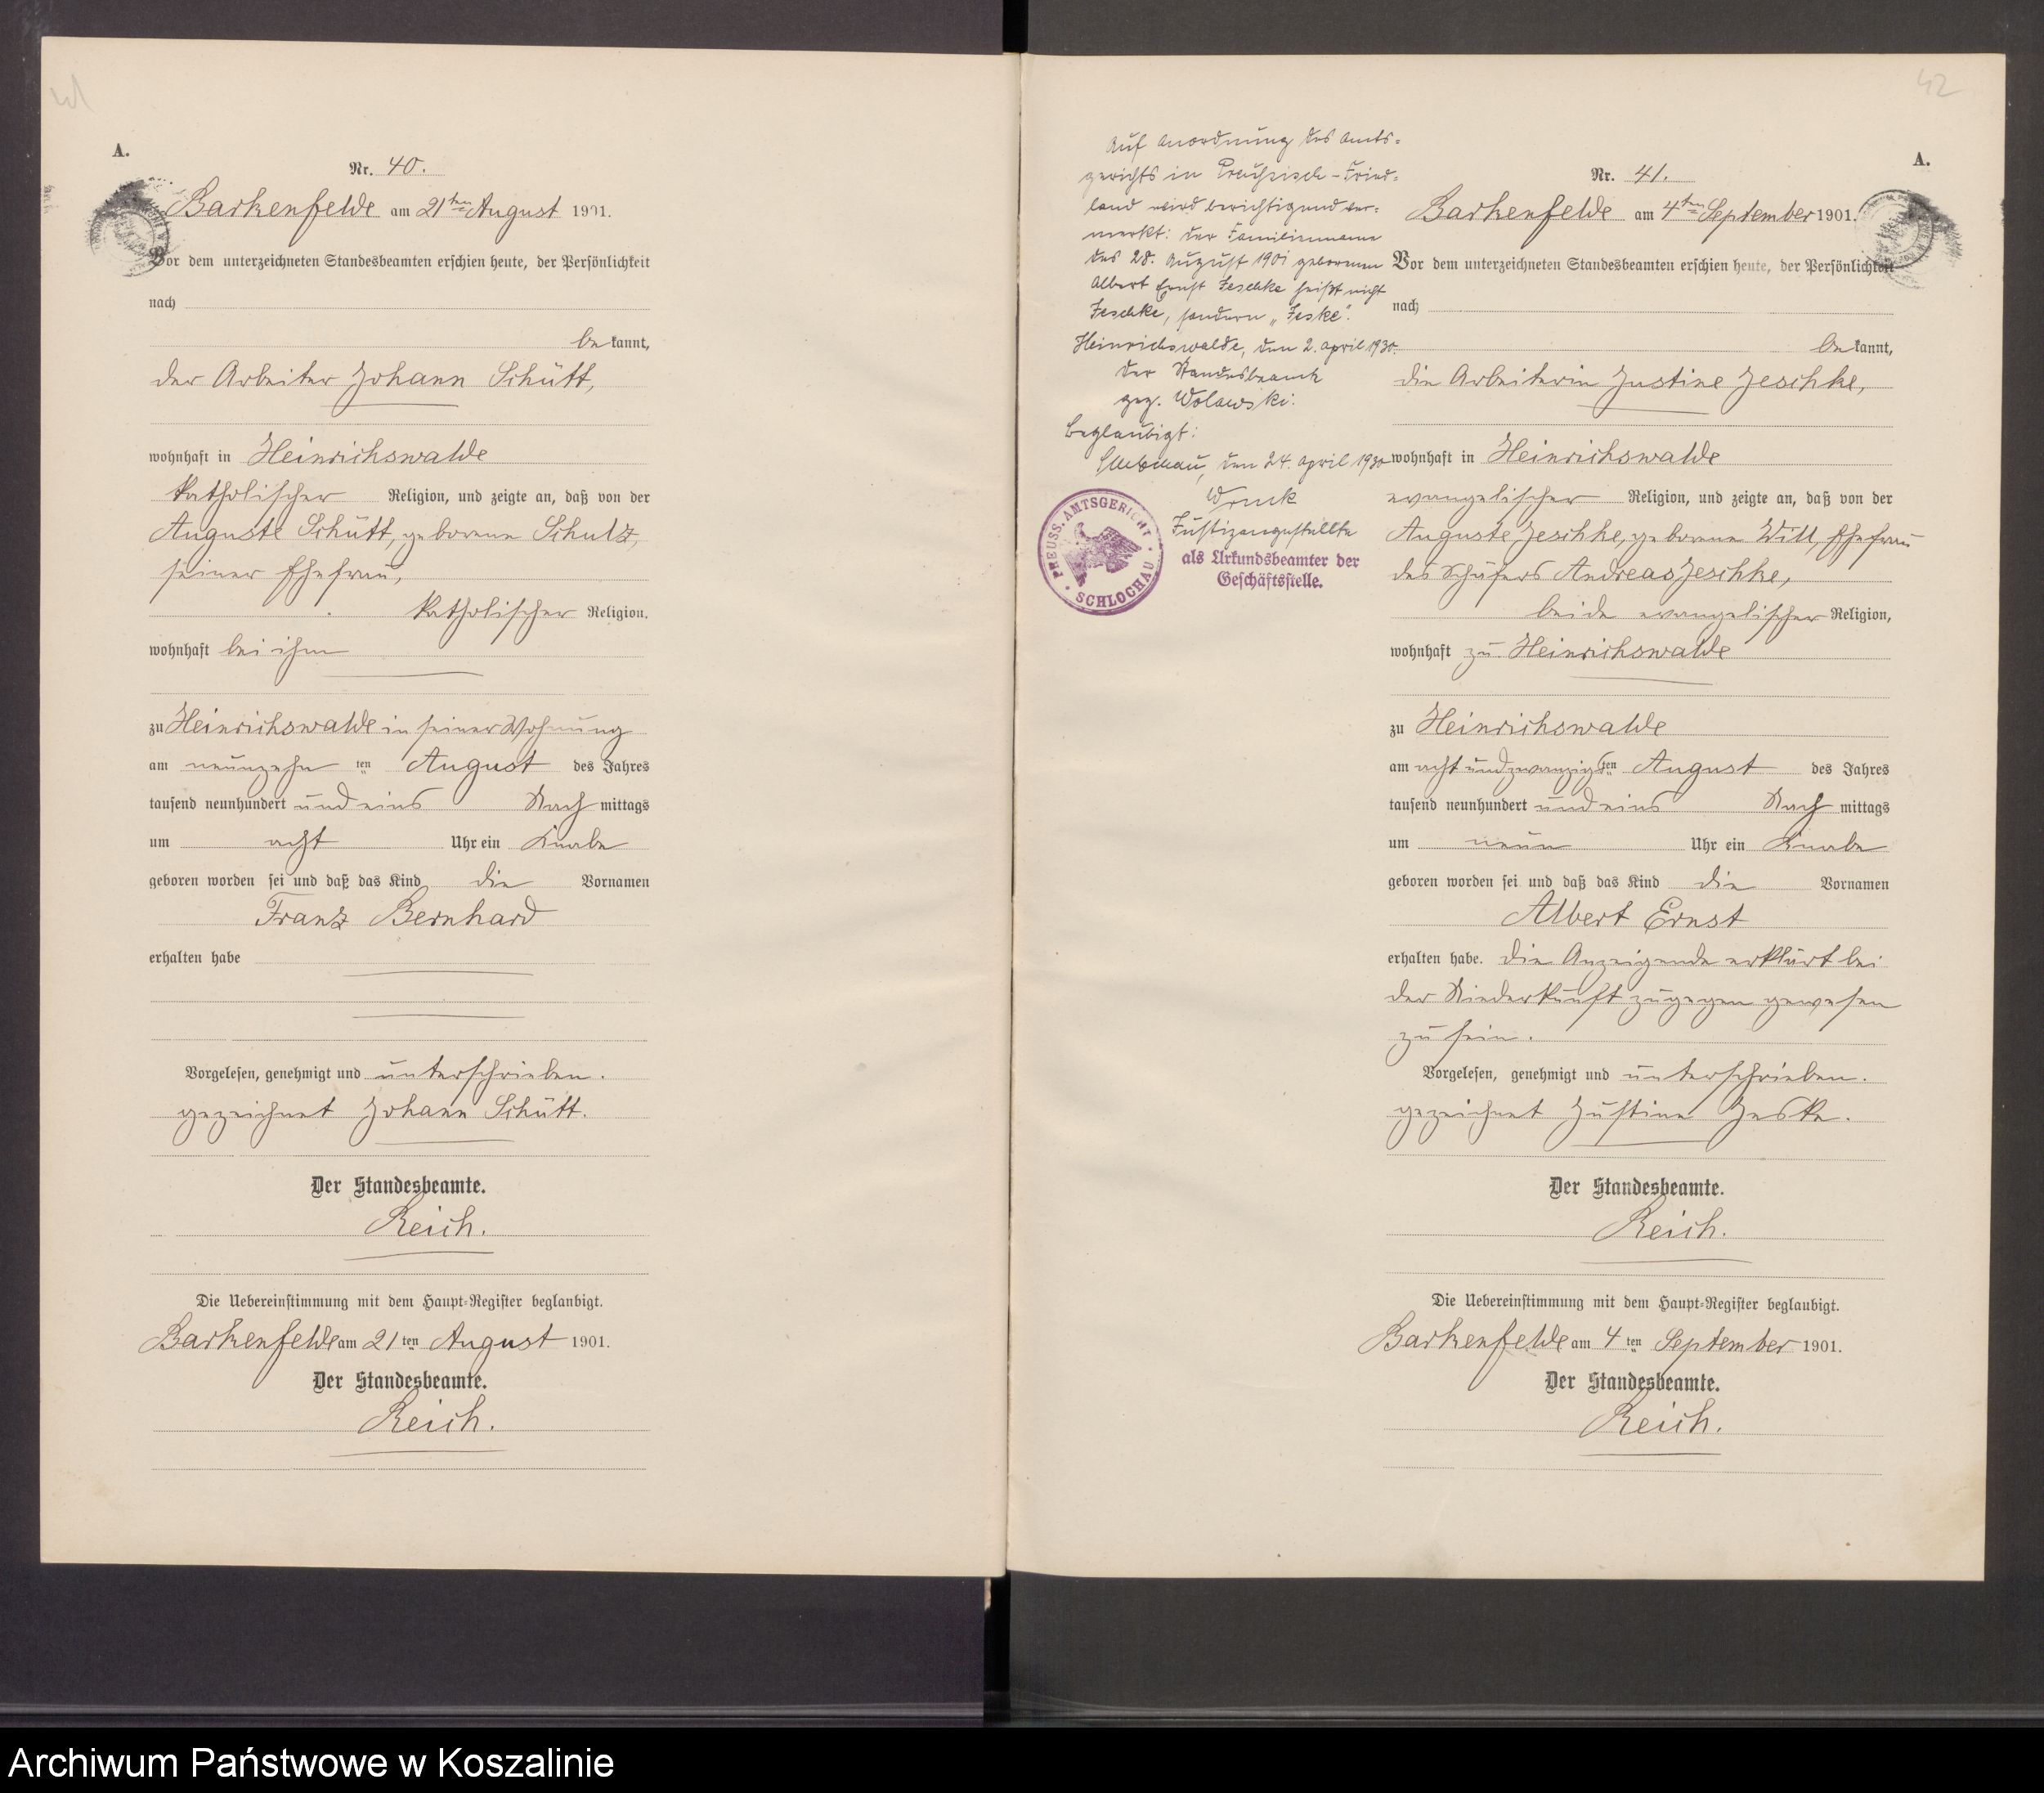 41
A.
Nr. 40.
Barkenfelde am 21ten August 1901.
Vor dem unterzeichneten Standesbeamten erschien heute, der Persönlichkeit
nach
bekannt,
der Arbeiter Johann Schütt,
wohnhaft in Heinrichswalde
katholischer Religion, und zeigte an, daß von der
Auguste Schütt, geborene Schulz,
seiner Ehefrau,
katholischer Religion.
wohnhaft bei ihm
zu Heinrichswalde in seiner Wohnung
am neunzehn ten August des Jahres
tausend neunhundert und eins Nach mittags
um acht Uhr ein Knabe
geboren worden sei und daß das Kind die Vornamen
Franz Bernhard
erhalten habe
Vorgelesen, genehmigt und unterschrieben.
gezeichnet Johann Schütt.
Der Standesbeamte.
Reich.
Die Uebereinstimmung mit dem Haupt-Register beglaubigt.
Barkenfelde am 21 ten August 1901.
Der Standesbeamte.
Reich.
42
Auf Anordnung des Amts-
gerichts in Preußisch-Fried-
land wird berichtigend ver-
merkt: der Familienname
des 28. August 1901 geborenen
Albert Ernst Jeschke heißt nicht
Jeschke, sondern „Jeske".
Heinrichswalde, den 2. April 1930.
Der Standesbeamte
gez. Wolawski.
Beglaubigt:
Schlochau, den 24. April 1930
Justizangestellte
als Urkundsbeamter der
Geschäftsstelle.
PREUSS. AMTSGERICHT
SCHLOCHAU
A.
Nr. 41.
Barkenfelde am 4ten September 1901.
Vor dem unterzeichneten Standesbeamten erschien heute, der Persönlichkeit
nach
bekannt,
die Arbeiterin Justine Jeschke,
wohnhaft in Heinrichswalde
evangelischer Religion, und zeigte an, daß von der
Auguste Jeschke, geborene Will, Ehefrau
des Schäfers Andreas Jeschke,
beide evangelischer Religion,
wohnhaft zu Heinrichswalde
zu Heinrichswalde
am acht und zwanzigsten August des Jahres
tausend neunhundert und eins Nach mittags
um neun Uhr ein Knabe
geboren worden sei und daß das Kind die Vornamen
Albert Ernst
erhalten habe. Die Anzeigende erklärt bei
der Niederkunft zugegen gewesen
zu sein.
Vorgelesen, genehmigt und unterschrieben.
gezeichnet Justine Jeske.
Der Standesbeamte.
Reich.
Die Uebereinstimmung mit dem Haupt-Register beglaubigt.
Barkenfelde am 4 ten September 1901.
Der Standesbeamte.
Reich.
Archiwum Państwowe w Koszalinie